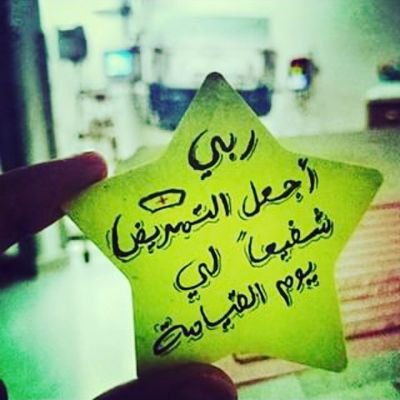 ربي
أجعل التمريض
شفيعاً لي
يوم القيامة